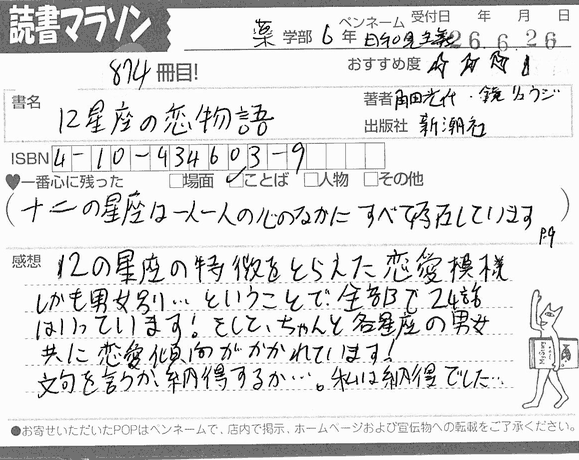 読書マラソン
薬 学部 6 年 ペンネーム 日和見主義 受付日 年 月 日
26.6.26
874 冊目!
おすすめ度 ☆ ☆ ☆
書名 12星座の恋物語
著者 角田光代・鏡リュウジ
出版社 新潮社
ISBN 4-10-434603-9
♥一番心に残った □場面 ☑ことば □人物 □その他
(十二の星座は一人一人の心のなかにすべて存在しています)
P.9
感想 12の星座の特徴をとらえた恋愛模様
しかも男女別…ということで全部で24話
はいっています!そして、ちゃんと各星座の男女
共に恋愛傾向がかかれています!
文句を言うか、納得するか…。私は納得でした…
●お寄せいただいたPOPはペンネームで、店内で掲示、ホームページおよび宣伝物への転載をご了承ください。